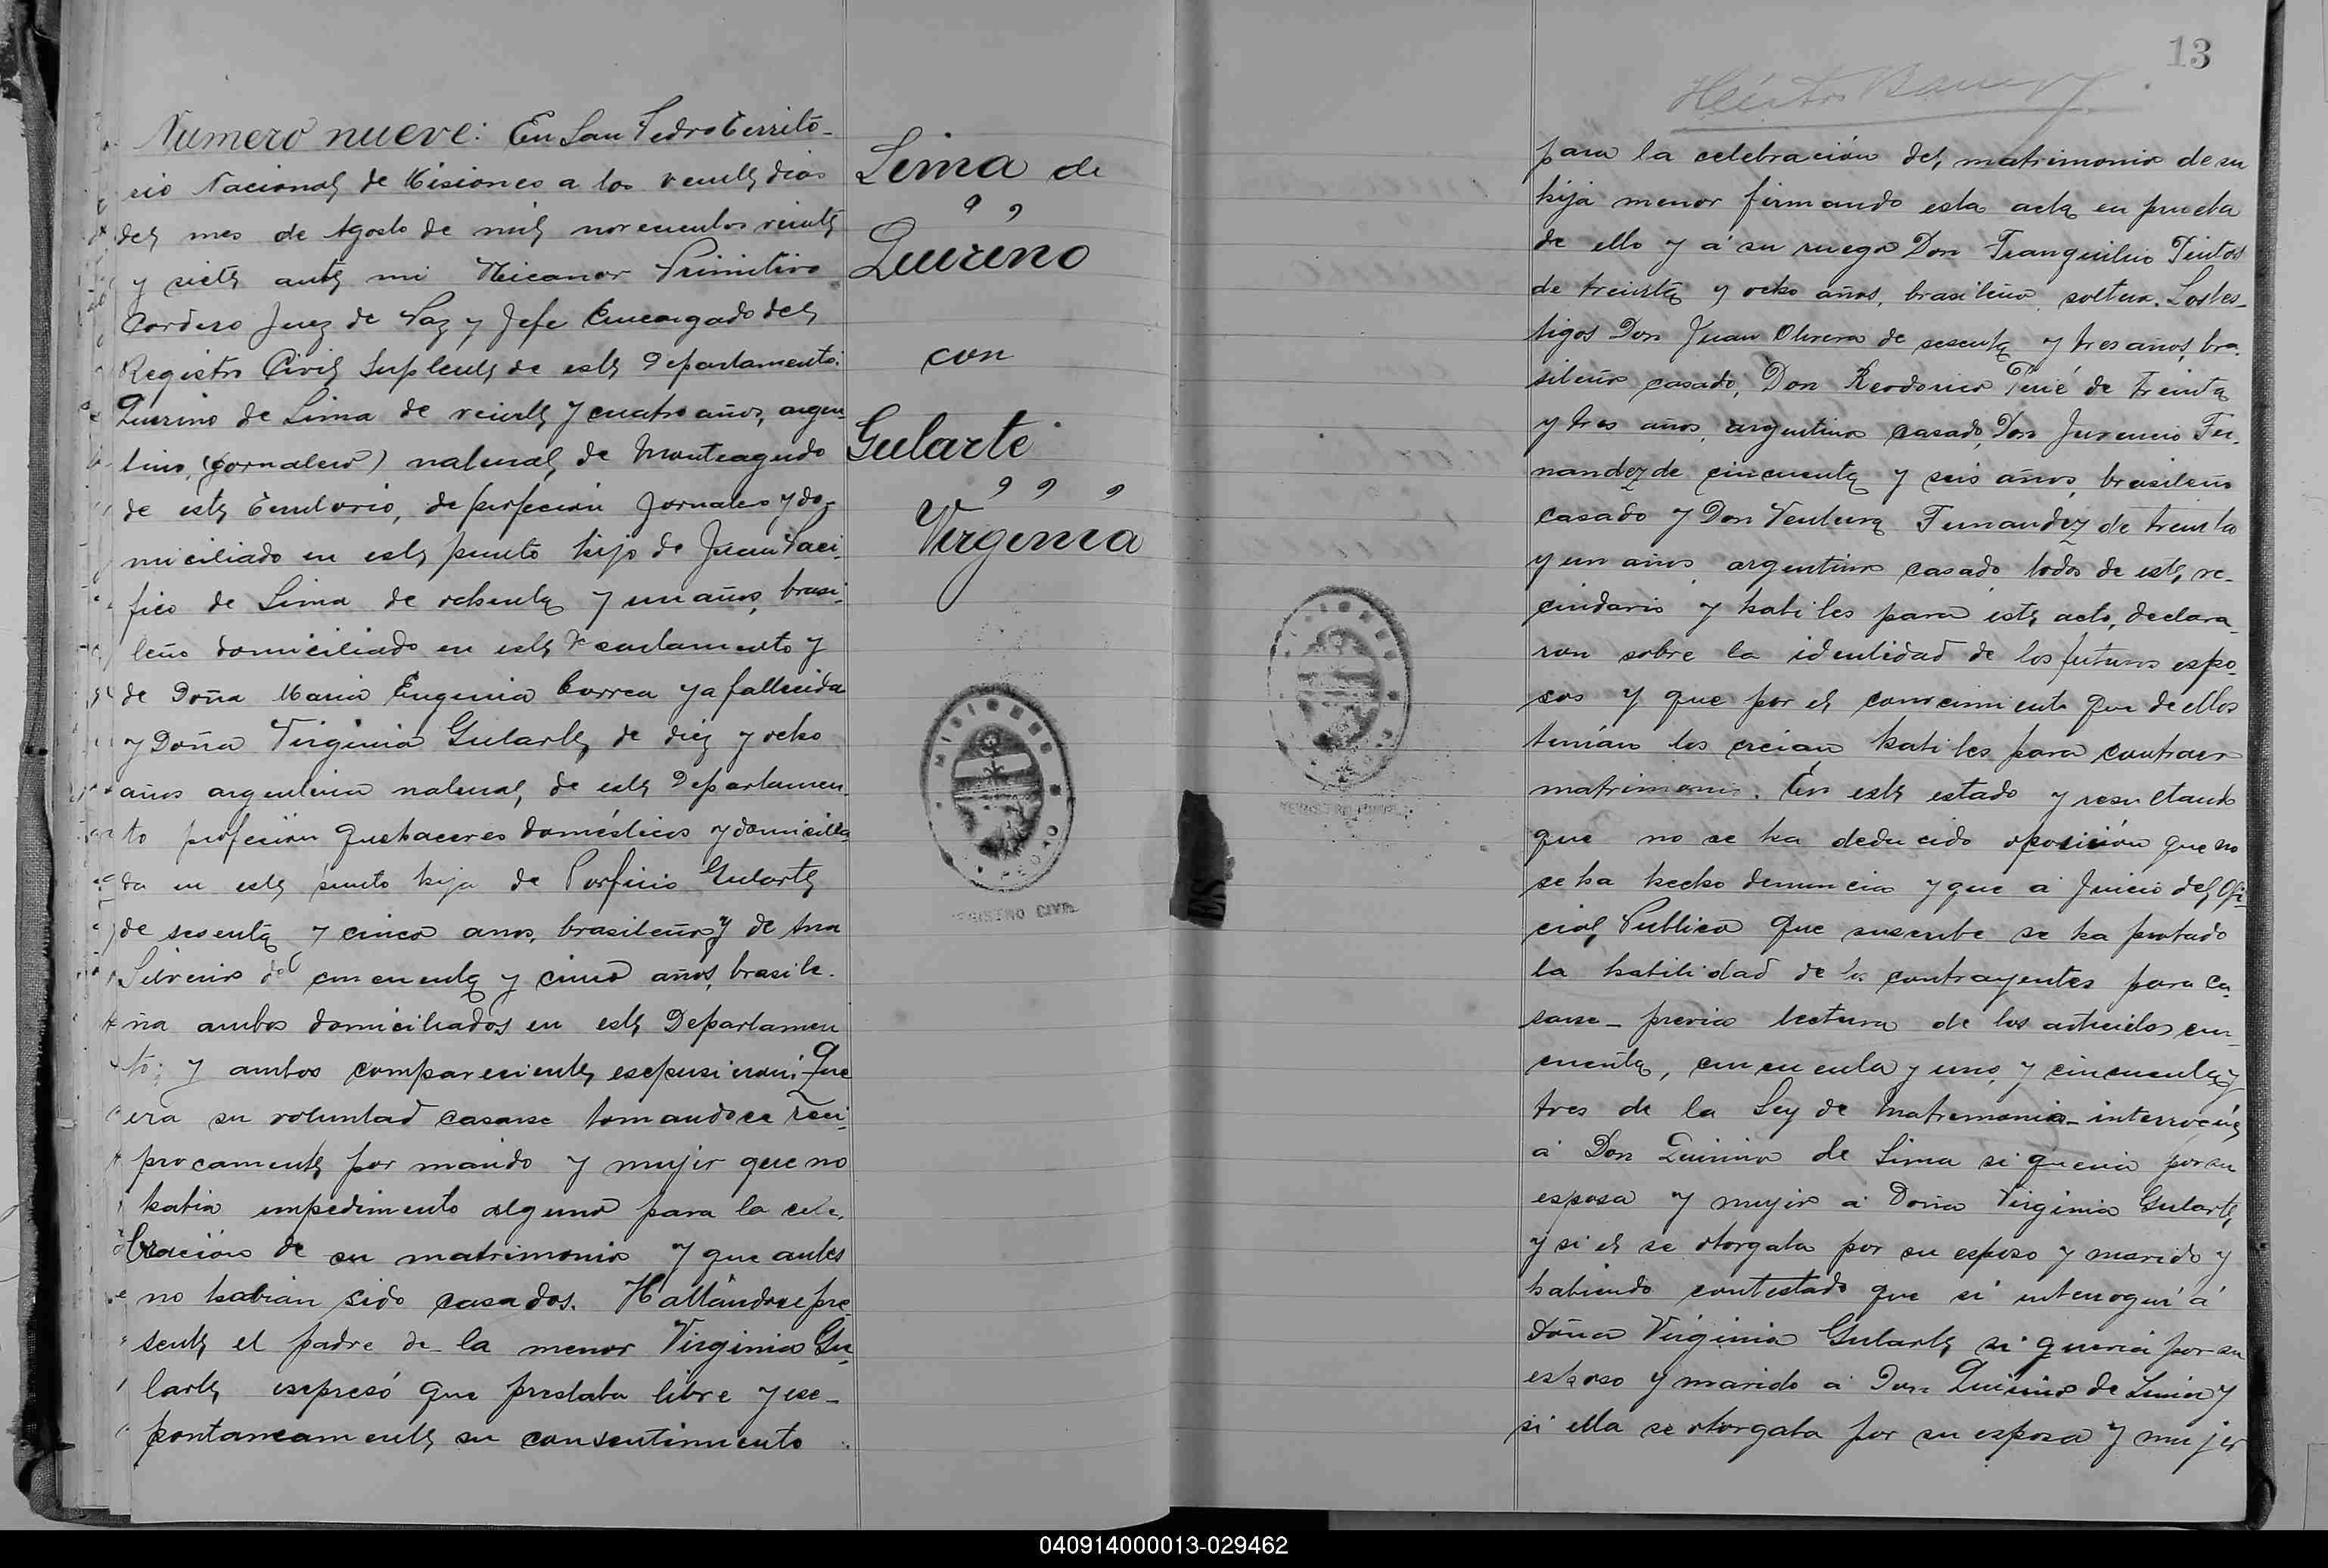 Numero nueve: En San Pedro Territo-
rio Nacional de Misiones a los veinte dias
del mes de Agosto de mil novecientos veinte
y siete ante mi Nicanor Primitivo
Cordero Juez de Paz y Jefe Encargado del
Registro Civil Suplente de este Departamento:
Quirino de Lima de veinte y cuatro años, argen
tino, (jornalero) natural de Monteagudo
de este Territorio, de profecion Jornalero y do-
miciliado en este punto hijo de Juan Paci-
fico de Lima de ochenta y un años, brasi-
leño domiciliado en este Departamento y
de Doña Maria Eugenia Correa ya fallecida
y Doña Virginia Gularte, de diez y ocho
años argentina natural, de este Departamen
to profecion quehaceres domésticos y domicilia
da en este punto hija de Porfirio Gularte
de sesenta y cinco anos, brasileño y de
de cincuenta y cinco años, brasile-
ña ambos domiciliados en este Departamen
to; y ambos compareciente, esepusieron: Que
era su voluntad casarse tomandose reci-
procamente por marido y mujer que no
habia impedimento alguno para la cele-
bración de su matrimonio y que antes
no habian sido casados. Hallándose pre
sente el padre de la menor Virginia Gu-
larte, esepresó que prestaba libre y ese-
pontaneamente su consentimiento
Lima de
Quireno
con
Gularte
Virginia
MISIONES
S. PEDRO
REGISTRO CIVIL
13
para la celebración del matrimonio de su
hija menor firmando esta acta en prueba
de ello y á su ruego Don Tranquilio Pintos
de treinta y ocho años, brasileño, soltero. Los tes-
tigos Don Juan Olivera de sesenta y tres años, bra-
sileño casado, Don de treinta
y tres años, argentino casado, Don Juvencio Fer-
nandez de cincuenta y seis años, brasileño
casado y Don Ventura Fernandez de treinta
y un años argentino casado todos de este ve-
cindario y habiles para este acto, declara-
ron sobre la identidad de los futuros espo-
sos y que por el conocimiento que de ellos
tenian los creian habiles para contraer
matrimonio. En este estado y resultando
que no se ha deducido oposición que no
se ha hecho denuncia y que a Juicio del Ofi-
cial Publico que suscribe se ha probado
la habilidad de los contrayentes para ca-
sarse - previa lectura de los articulos cin-
cuenta, cincuenta y uno, y cincuenta y
tres de la Ley de Matrimonio - interrogué
á Don Quirino de Lima si queria por su
esposa y mujer a Doña Virginia Gularte,
y si el se otorgaba por su esposo y marido y
habiendo contestado que si interrogué á
doña Virginia Gularte, si queria por su
esposo y marido a Don Quirino de Lima y
si ella se otorgaba por su esposa y mujer
040914000013-029462